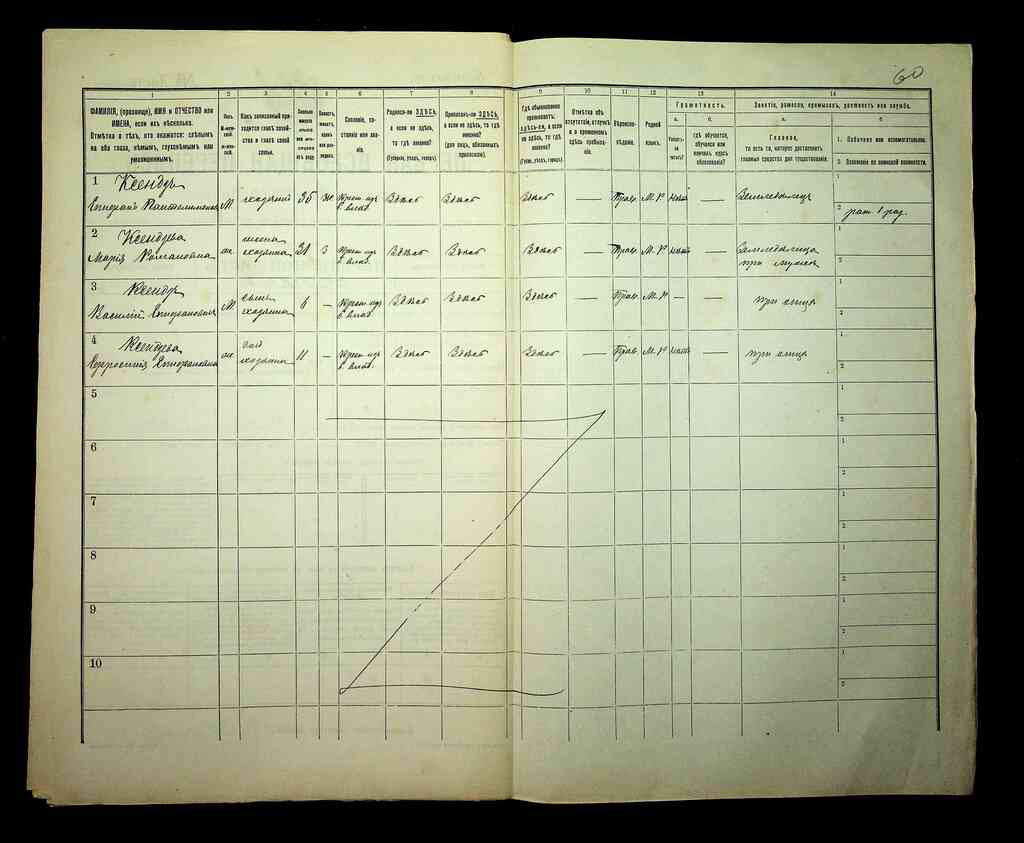 60
1 2 3 4 5 6 7 8 9 10 11 12 13 14
ФАМИЛІЯ, (прозвище), ИМЯ и ОТЧЕСТВО или
ИМЕНА, если ихъ нѣсколько.
Отмѣтка о тѣхъ, кто окажется: слѣпымъ
на оба глаза, нѣмымъ, глухонѣмымъ или
умалишеннымъ.
Полъ.
Какъ записанный при-
ходится главѣ хозяй-
ства и главѣ своей
семьи.
Сословіе, со-
стояніе или зва-
ніе.
Родился-ли ЗДѢСЬ,
а если не здѣсь,
то гдѣ именно?
(Губернія, уѣздъ, городъ).
Приписанъ-ли ЗДѢСЬ,
а если не здѣсь, то гдѣ
именно?
(для лицъ, обязанныхъ
припискою).
Гдѣ обыкновенно
проживаетъ:
здѣсь-ли, а если
не здѣсь, то гдѣ
именно?
(Губ., уѣздъ, городъ).
Отмѣтка объ
отсутствіи, отлучкѣ
и о временномъ
здѣсь пребыва-
ніи.
Вѣроиспо-
вѣданіе.
Родной
языкъ.
Грамотность.
а. б.
Умѣетъ-
ли
читать?
Гдѣ обучается,
обучался или
кончилъ курсъ
образованія?
Занятіе, ремесло, промыселъ, должность или служба.
а. б.
Главное,
то есть то, которое доставляетъ
главныя средства для существованія.
1. Побочное или вспомогательное.
2. Положеніе по воинской повинности.
1 Ксендзъ
М. хозяинъ 35 жн. Крест. изъ б. влад. Здѣсь Здѣсь Здѣсь — Прав. М. Р. — Земледѣлецъ
1
2 рат. 1 раз.
2 Ксендзева
Марія Романовна ж. жена хозяина 3 Крест. изъ б. влад. Здѣсь Здѣсь Здѣсь — Прав. М. Р. — Земледѣлица при мужѣ
1
2
3 Ксендзъ
Василій М. сынъ хозяина 6 — Крест. изъ б. влад. Здѣсь Здѣсь Здѣсь — Прав. М. Р. — — при отцѣ
1
2
4 Ксендзева
ж. дочь хозяина 11 — Крест. изъ б. влад. Здѣсь Здѣсь Здѣсь — Прав. М. Р. — при отцѣ
1
2
5
1
2
6
1
2
7
1
2
8
1
2
9
1
2
10
1
2